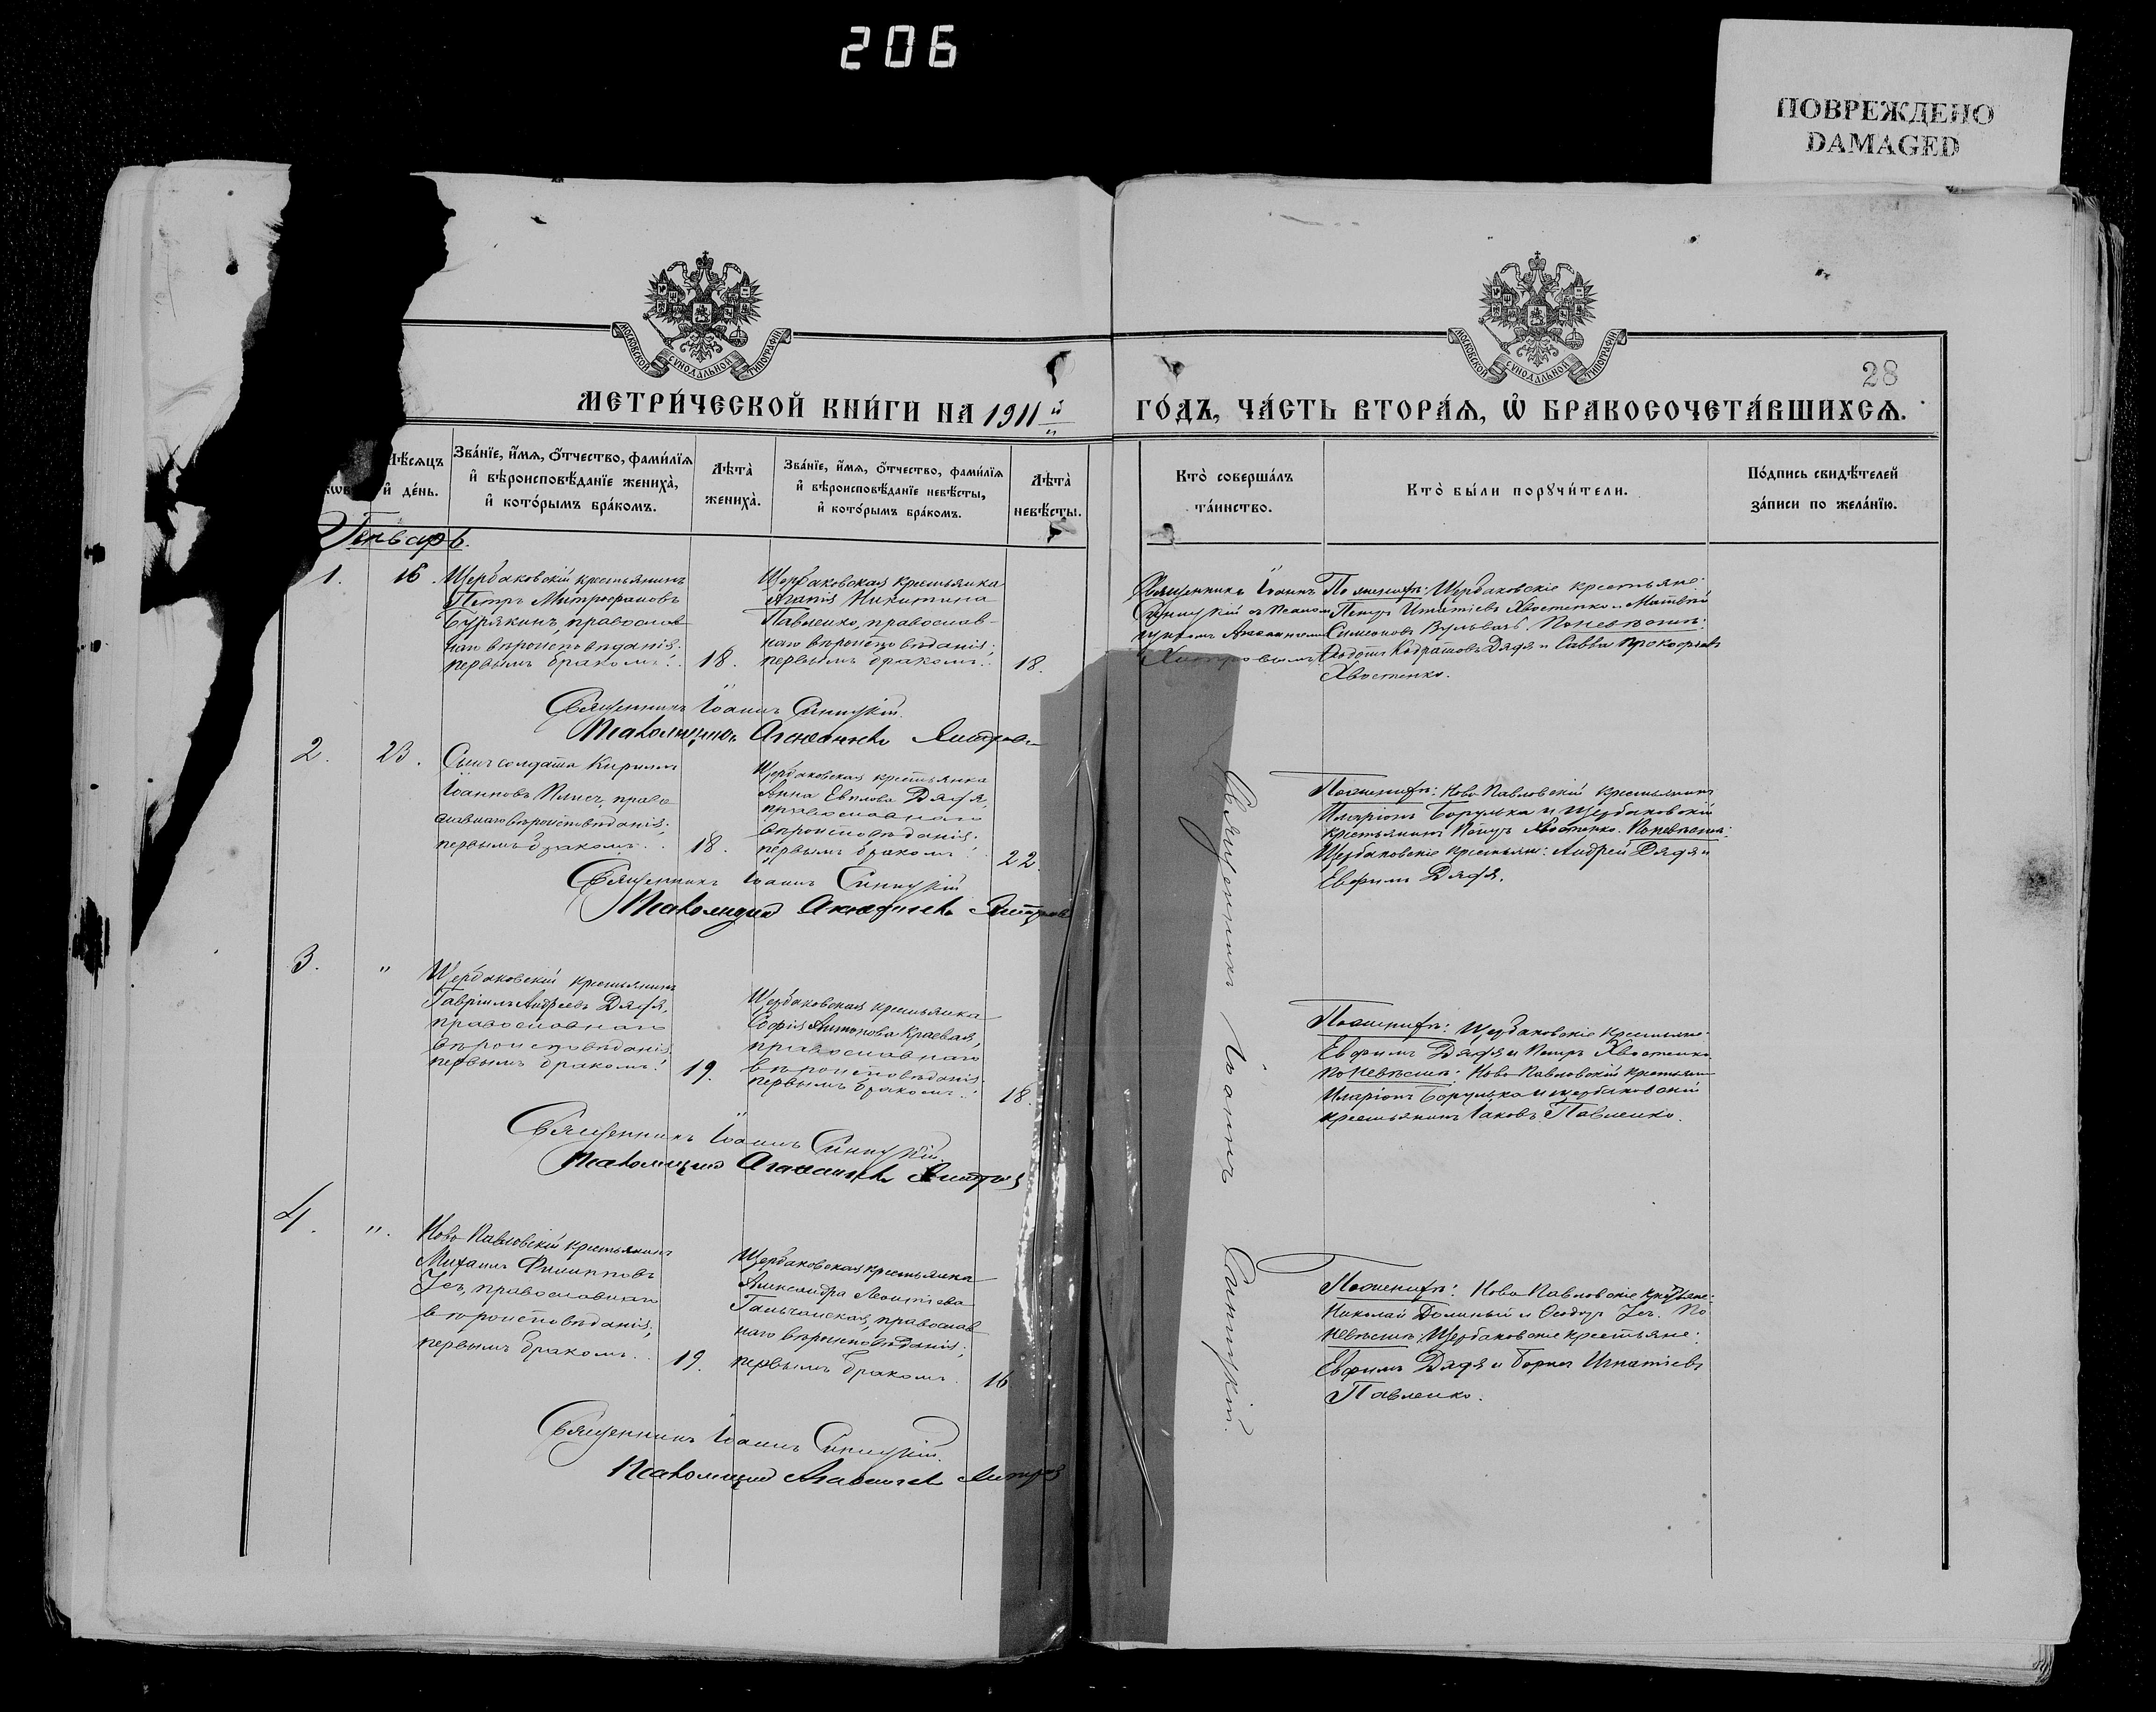 206
ПОВРЕЖДЕНО
DAMAGED
МОСКОВСКОЙ СѴНОДАЛЬНОЙ ТИПОГРАФІИ
МОСКОВСКОЙ СѴНОДАЛЬНОЙ ТИПОГРАФІИ
28
МЕТРИ́ЧЕСКОЙ КНИ́ГИ НА 1911 й
ГО́ДЪ, ЧА́СТЬ ВТОРА́Я, Ѡ҆ БРАКОСОЧЕТА́ВШИХСЯ.
Мѣ́сяцъ
и҆ де́нь.
Зва́нїе, и҆́мя, ѻ҆́тчество, фами́лїя
и҆ вѣроисповѣ́данїе жениха̀,
и҆ кото́рымъ бра́комъ.
Лѣта̀
жениха̀.
Зва́нїе, и҆́мя, ѻ҆́тчество, фами́лїя
и҆ вѣроисповѣ́данїе невѣ́сты,
и҆ кото́рымъ бра́комъ.
Лѣта̀
невѣ́сты.
Кто̀ соверша́лъ
та́инство.
Кто̀ бы́ли порꙋчи́тели.
По́дпись свидѣ́телей
за́писи по жела́нїю.
Генварь.
1.
16.
Щербаковскій крестьянинъ
Петръ Митрофановъ
Бурякинъ, православ-
наго вѣроисповѣданія.
первымъ бракомъ.
18.
Щербаковская крестьянка
Агапія Никитина
Павленко, православ-
наго вѣроисповѣданія;
первымъ бракомъ.
18.
Священникъ Іоаннъ
Синицкій съ псалом
щикомъ
По женихѣ: Щербаковскіе крестьяне:
Петръ Игнатіевъ Хвостенко и Матвѣй
Симеоновъ По невѣстѣ:
Федотъ Кодратовъ Дядя и Савва Прокофьевъ
Хвостенко.
Священникъ Іоаннъ Синицкій.
Псаломщикъ
2.
23.
Сынъ солдата Кириллъ
Іоанновъ право
славнаго вѣроисповѣданія;
первымъ бракомъ.
18.
Щербаковская крестьянка
Анна Евплова Дядя,
православнаго
вѣроисповѣданія;
первымъ бракомъ
22.
По женихѣ: Ново Павловскій крестьянинъ
Иларіонъ Борулька и Щербаковскій
крестьянинъ Петръ Хвостенко. По невѣстѣ:
Щербаковскіе крестьяне: Андрей Дядя и
Евфимъ Дядя.
Священникъ Іоаннъ Синицкій
Псаломщикъ
3.
"
Щербаковскій крестьянинъ
Гавріилъ Андреевъ Дядя,
православнаго
вѣроисповѣданія
первымъ бракомъ.
19.
Щербаковская крестьянка
Софія Антонова Краевая,
православнаго
вѣроисповѣданія;
первымъ бракомъ.
18.
По женихѣ: Щербаковскіе крестьяне:
Евфимъ Дядя и Петръ Хвостенко
По невѣстѣ: Ново Павловскій крестьян
Иларіонъ Борулька и щербаковскій
крестьянинъ Іаковъ Павленко.
Священникъ Іоаннъ Синицкій.
Псаломщикъ
4.
".
Ново Павловскій крестьянинъ
Михаилъ Филипповъ
Усъ, православнаго
вѣроисповѣданія,
первымъ бракомъ.
19.
Щербаковская крестьянка
Александра Леонтіева
православ
наго вѣроисповѣданія;
первымъ бракомъ.
16
По женихѣ: Ново Павловскіе крестьяне:
Николай Долиный и Феодоръ Усъ. По
невѣстѣ: Щербаковскіе крестьяне:
Евфимъ Дядя и Борисъ Игнатіевъ
Павленко.
Священникъ Іоаннъ Синицкій.
Псаломщикъ
Священникъ Іоаннъ Синицкій.